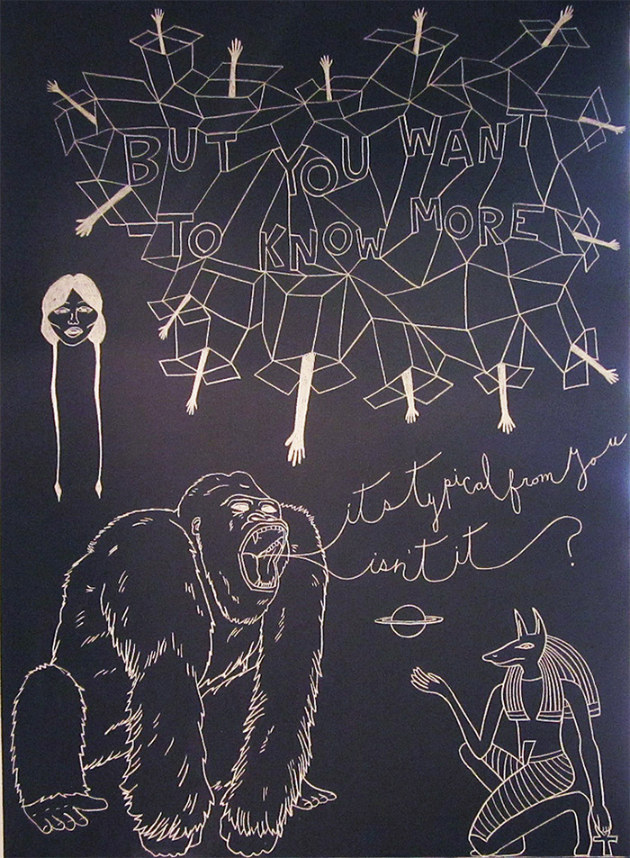 BUT YOU WANT
TO KNOW MORE
it's typical from you
isn't it ?